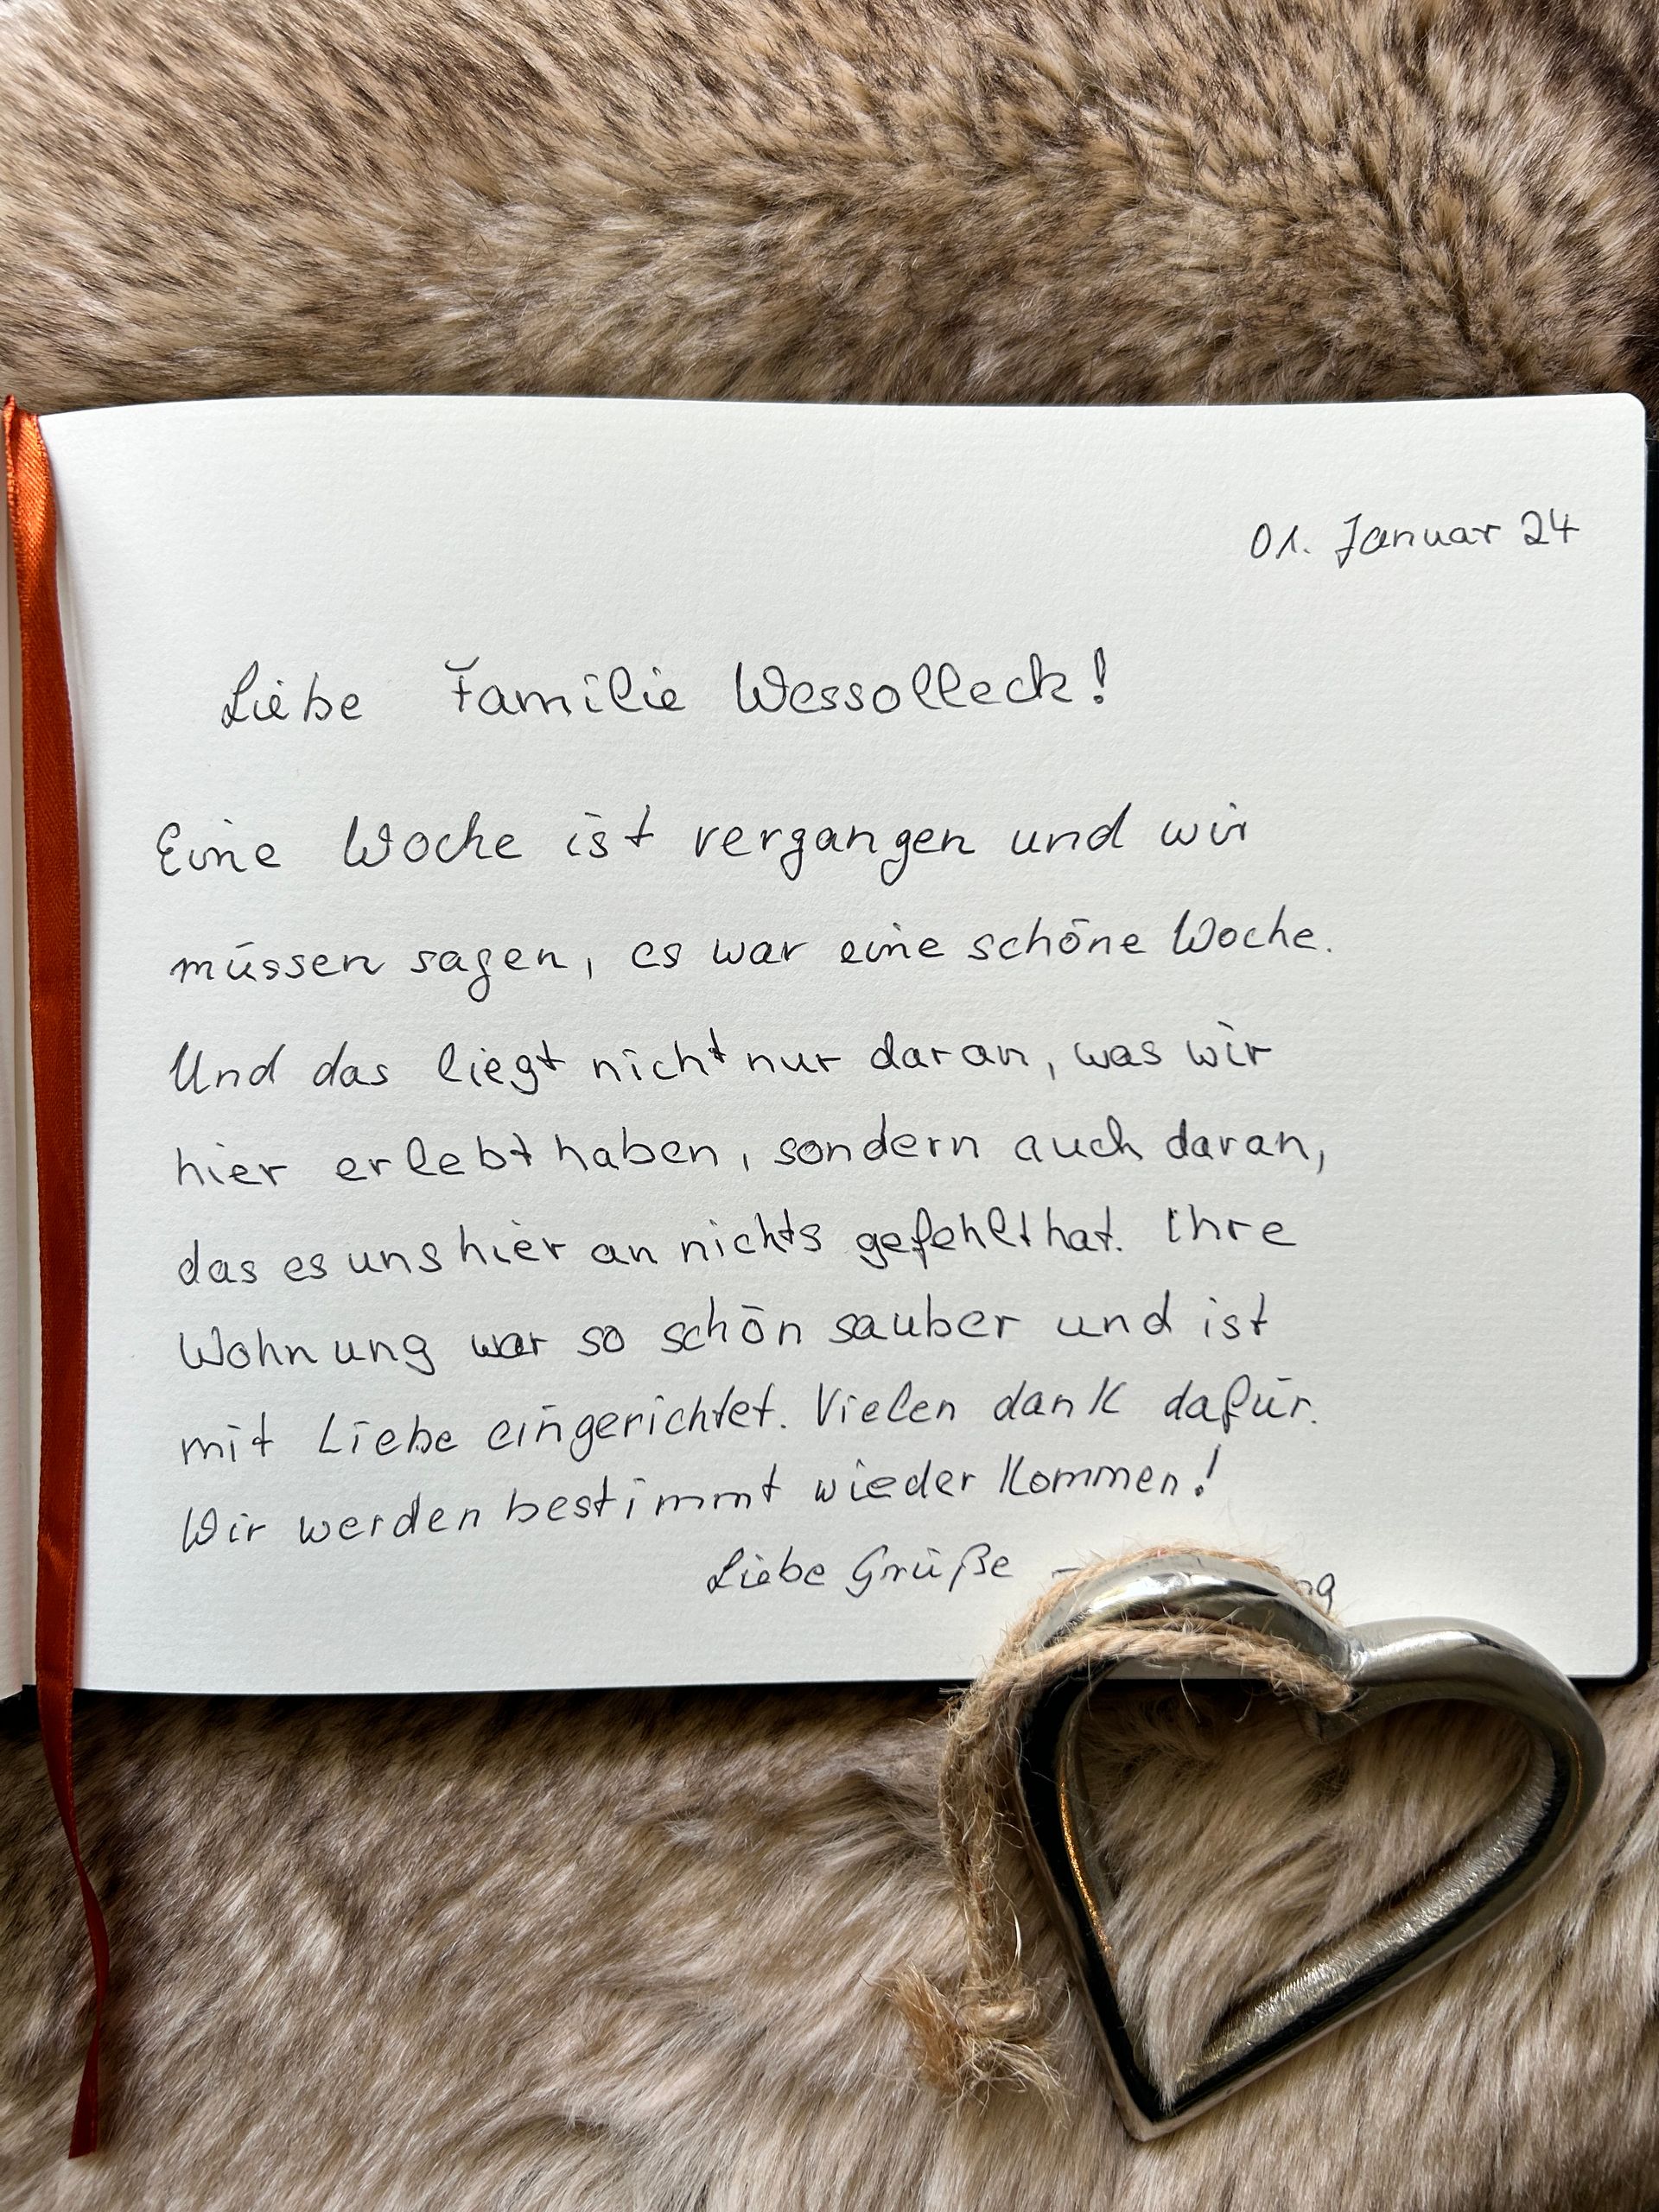 01. Januar 24
Liebe Familie Wessolleck!
Eine Woche ist vergangen und wir
müssen sagen, es war eine schöne Woche.
Und das liegt nicht nur daran, was wir
hier erlebt haben, sondern auch daran,
das es uns hier an nichts gefehlt hat. Ihre
Wohnung war so schön sauber und ist
mit Liebe eingerichtet. Vielen dank dafür.
Wir werden bestimmt wieder kommen!
Liebe Grüße